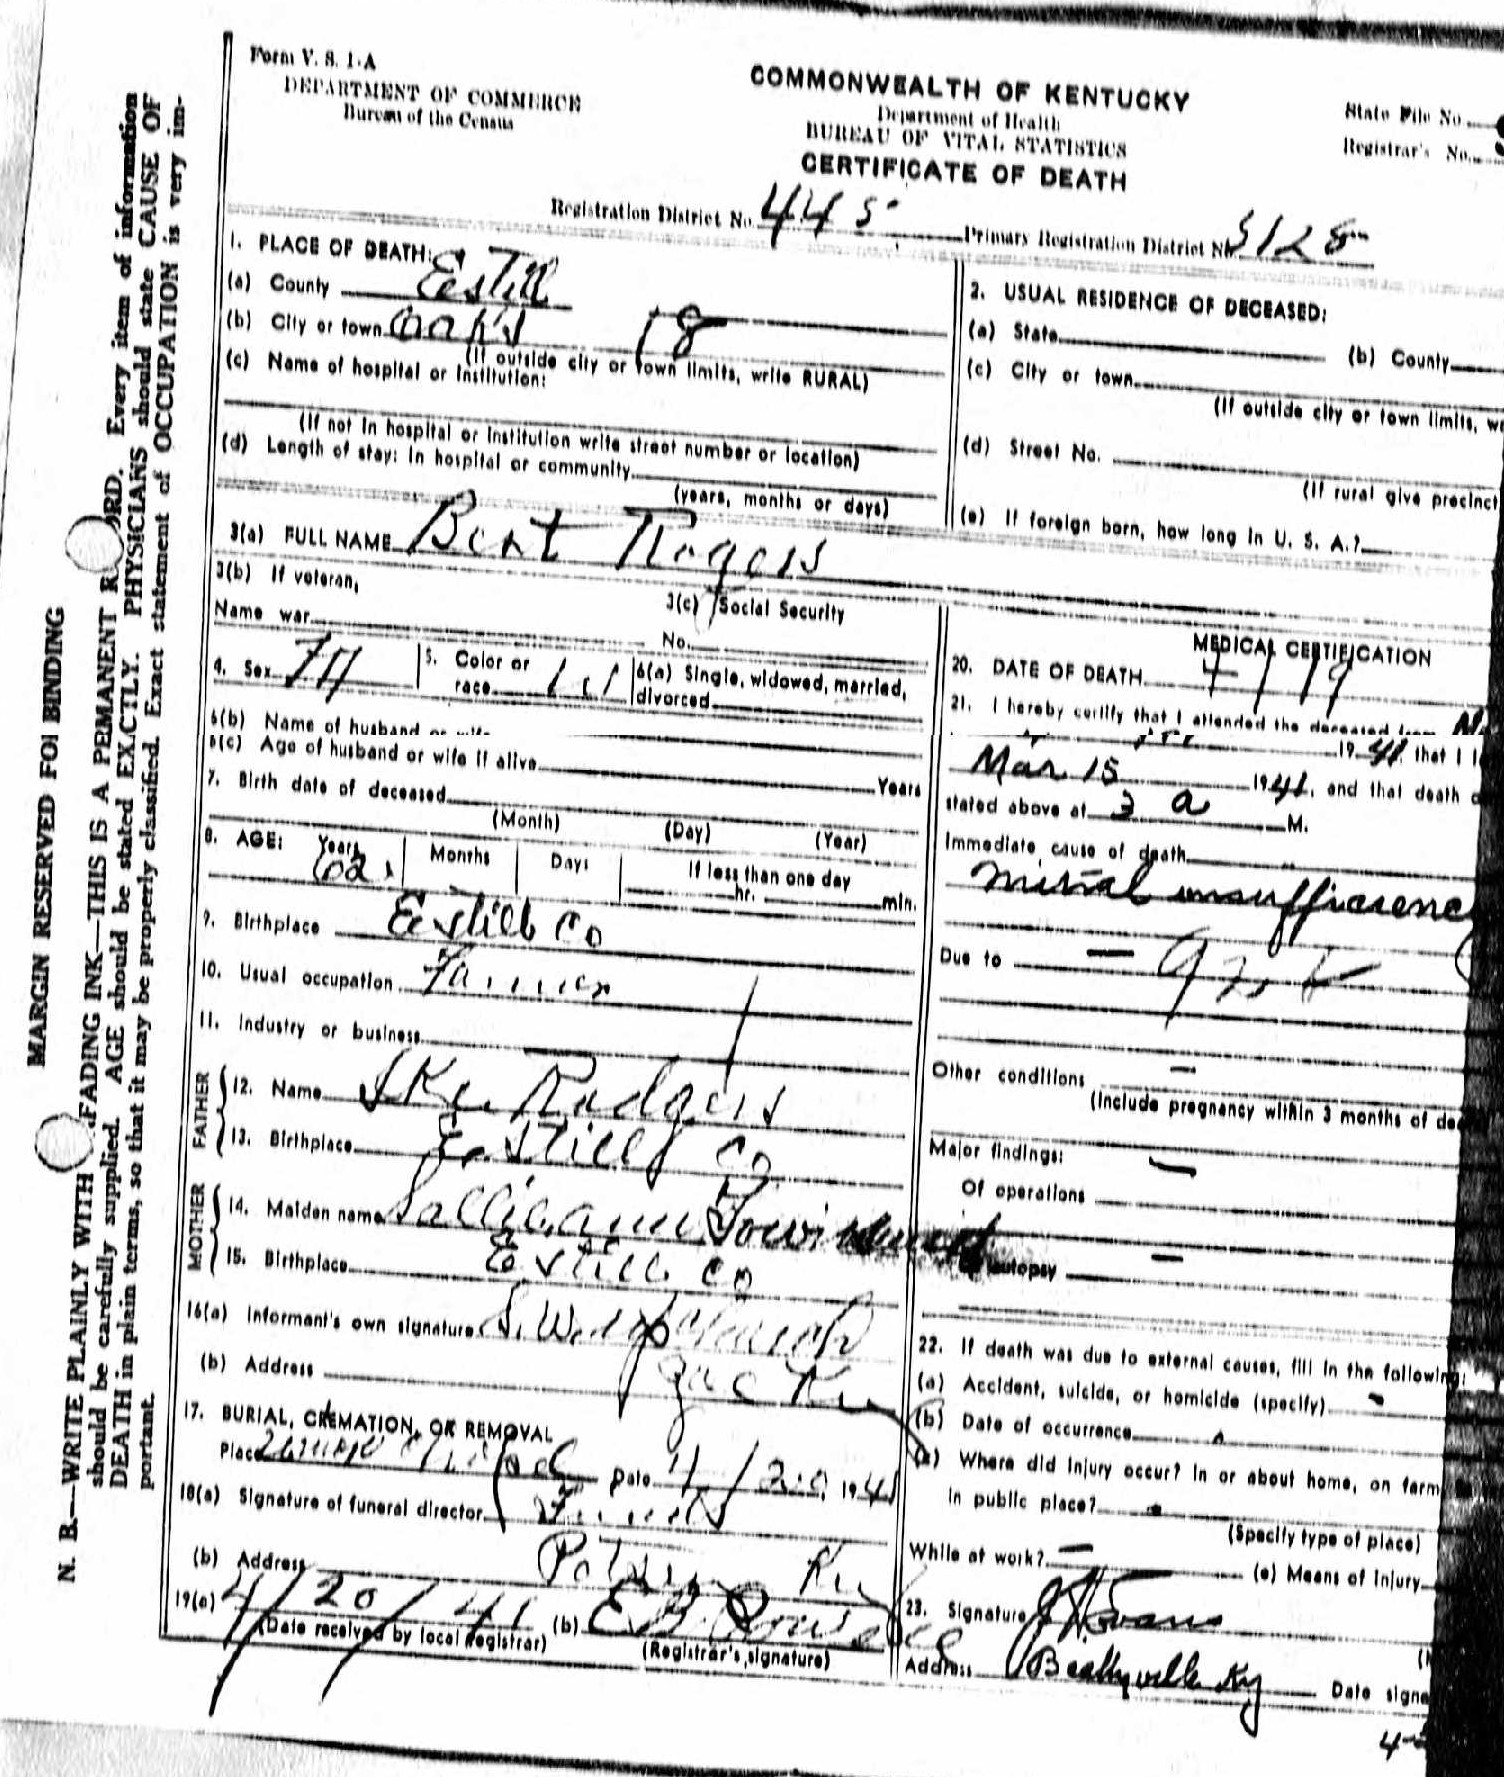 Form V. S. 1-A
DEPARTMENT OF COMMERCE
Bureau of the Census
COMMONWEALTH OF KENTUCKY
Department of Health
BUREAU OF VITAL STATISTICS
CERTIFICATE OF DEATH
State File No.
Registrar's No.
Registration District No. 445 Primary Registration District No. 5128
1. PLACE OF DEATH:
(a) County Estill
(b) City or town 18
(If outside city or town limits, write RURAL)
(c) Name of hospital or institution:
(If not in hospital or institution write street number or location)
(d) Length of stay: In hospital or community
(years, months or days)
2. USUAL RESIDENCE OF DECEASED:
(a) State (b) County
(c) City or town
(If outside city or town limits,
(d) Street No.
(If rural give precinct
(e) If foreign born, how long in U. S. A.?
3(a) FULL NAME Bert Rogers
3(b) If veteran,
Name war
3(c) Social Security
No.
4. Sex M 5. Color or race W 6(a) Single, widowed, married, divorced
6(b) Name of husband or wife
6(c) Age of husband or wife if alive Years
7. Birth date of deceased
(Month) (Day) (Year)
8. AGE: Years 62 Months Days If less than one day
hr. min.
9. Birthplace Estill Co
10. Usual occupation Farmer
11. Industry or business
FATHER
12. Name Ike Rodgers
13. Birthplace Estill Co
MOTHER
14. Maiden name Sallie ann
15. Birthplace Estill Co
16(a) Informant's own signature
(b) Address Ky
17. BURIAL, CREMATION, OR REMOVAL
Place Date 4/20, 1941
18(a) Signature of funeral director Friends
(b) Address Ky
19(a) 4/20/41 (b) E B
(Date received by local registrar) (Registrar's signature)
MEDICAL CERTIFICATION
20. DATE OF DEATH 4/19
21. I hereby certify that I attended the deceased from
1941, that I
Mar 15 1941, and that death
stated above at 3 a M.
Immediate cause of death
mitral insufficiency
Due to —
Other conditions —
(Include pregnancy within 3 months of
Major findings: —
Of operations
autopsy —
22. If death was due to external causes, fill in the following:
(a) Accident, suicide, or homicide (specify) -
(b) Date of occurrence
(c) Where did injury occur? In or about home, on farm
in public place? -
(Specify type of place)
While at work? — (e) Means of injury
23. Signature Evans
Address Beattyville Ky Date
MARGIN RESERVED FOR BINDING
N. B.—WRITE PLAINLY WITH FADING INK—THIS IS A PERMANENT RECORD. Every item of information
should be carefully supplied. AGE should be stated EXACTLY. PHYSICIANS should state CAUSE OF
DEATH in plain terms, so that it may be properly classified. Exact statement of OCCUPATION is very im-
portant.